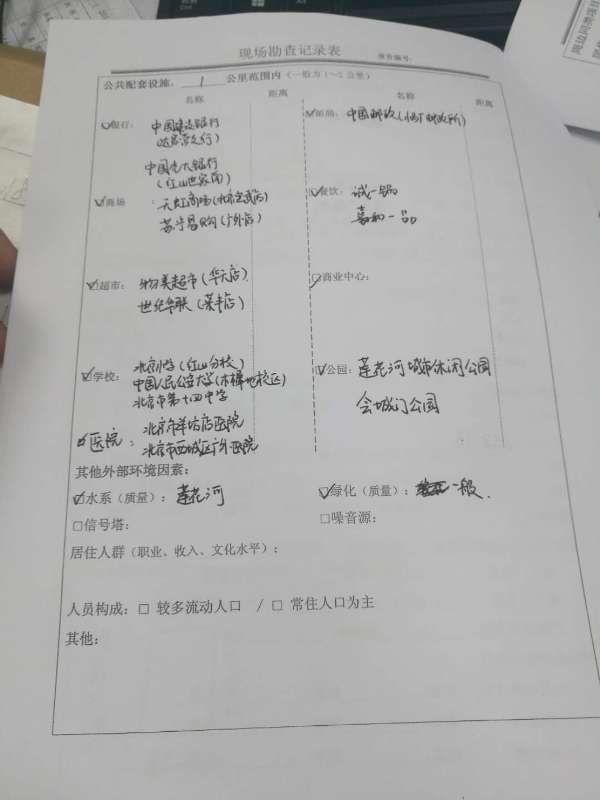 现场勘查记录表
报告编号:
公共配套设施, 1 公里范围内(一般为1~2公里)
名称 距离 名称 距离
☑银行: 中国建设银行
☑邮局: 中国邮政
中国光大银行
(红山世家南)
☑商场
苏宁易购(广外店)
☑餐饮: 诚一锅
嘉和一品
☑超市: 物美超市(华天店)
世纪华联(荣丰店)
□商业中心:
☑学校: 北京小学(红山分校)
中国人民公安大学(木樨地校区)
北京市第十四中学
☑公园: 莲花河城市休闲公园
会城门公园
☑医院: 北京市羊坊店医院
北京市西城区广外医院
其他外部环境因素:
☑水系(质量): 莲花河
☑绿化(质量): 一般.
□信号塔:
□噪音源:
居住人群(职业、收入、文化水平);
人员构成: □ 较多流动人口 / □ 常住人口为主
其他: